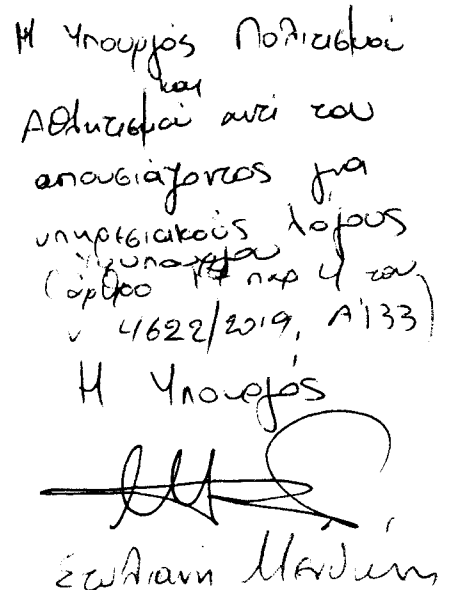 Η Υπουργός Πολιτισμού
και
Αθλητισμού αντί του
απουσιάζοντος για
υπηρεσιακούς λόγους
Υφυπουργού
(άρθρο παρ 4 του
ν 4622/2019, Α'133)
Η Υπουργός
Στυλιανή Μενδώνη